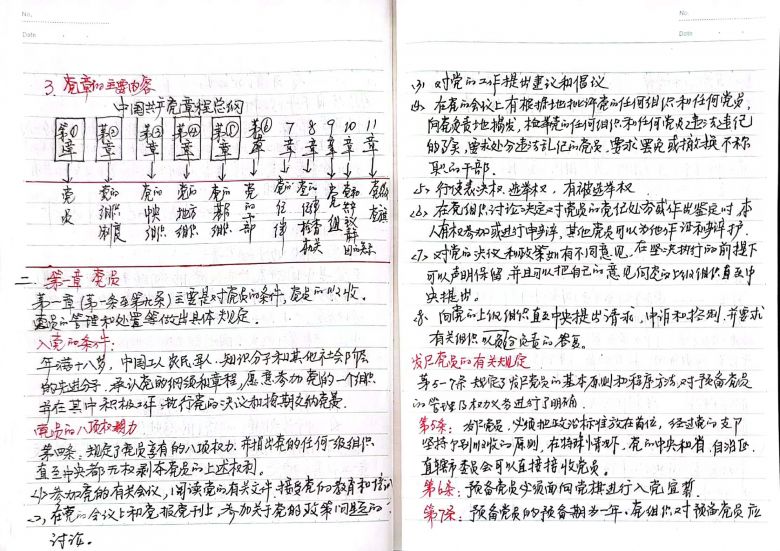 No.
Date
3. 党章的主要内容
中国共产党章程总纲
第①章 第②章 第③章 第④章 第⑤章 第⑥章 7章 8章 9章 10章 11章
党员 党的组织制度 党的中央组织 党的地方组织 党的基层组织 党的干部 党的纪律 党的纪律检查机关 党组 党和共青团的关系 党徽党旗
二. 第一章 党员
第一章(第一条至第九条)主要是对党员的条件,党员的吸收,
党员的管理和处置等做出具体规定.
入党的条件:
年满十八岁,中国工人农民军人、知识分子和其他社会阶层
的先进分子,承认党的纲领和章程,愿意参加党的一个组织
并在其中积极工作,执行党的决议和按期交纳党费.
党员的八项权力
第四条:规定了党员享有的八项权力.并指出党的任何一级组织
直至中央都无权剥夺党员的上述权利.
(1)参加党的有关会议,阅读党的有关文件,接受党的教育和培训
(2)在党的会议上和党报党刊上,参加关于党的政策问题的
讨论.
No.
Date
(3) 对党的工作提出建议和倡议
(4) 在党的会议上有根据地批评党的任何组织和任何党员,
向党负责地揭发,检举党的任何组织和任何党员违法违纪
的事实,要求处分违法乱纪的党员,要求罢免或撤换不称
职的干部.
(5) 行使表决权 选举权,有被选举权
(6) 在党组织讨论决定对党员的党纪处分或作出鉴定时,本
人有权参加或进行申辩,其他党员可以为他作证和辩护.
(7) 对党的决议和政策如有不同意见,在坚决执行的前提下
可以声明保留,并且可以把自己的意见向党的上级组织直至中
央提出.
(8) 向党的上级组织直至中央提出请求,申诉和控制,并要求
有关组织以给负责的答复.
发尸党员的有关规定
第5-7条规定了发尸党员的基本原则和程序方法,对预备党员
的管理及权力义务进行了明确.
第5条: 党员,必须把政治标准放在首位,经过党的支部
坚持个别吸收的原则,在特殊情况下,党的中央和省、自治区、
直辖市委员会可以直接接收党员.
第6条: 预备党员必须面向党旗进行入党宣誓.
第7条: 预备党员的预备期为一年,党组织对预备党员应